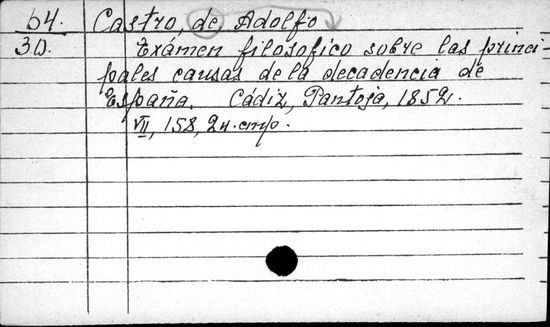 64. Castro, de Adolfo
30. Exámen filosofico sobre las princi-
pales causas de la decadencia de
España. Cádiz, Pantoja, 1852.
VII, 158, 2 н. стр.